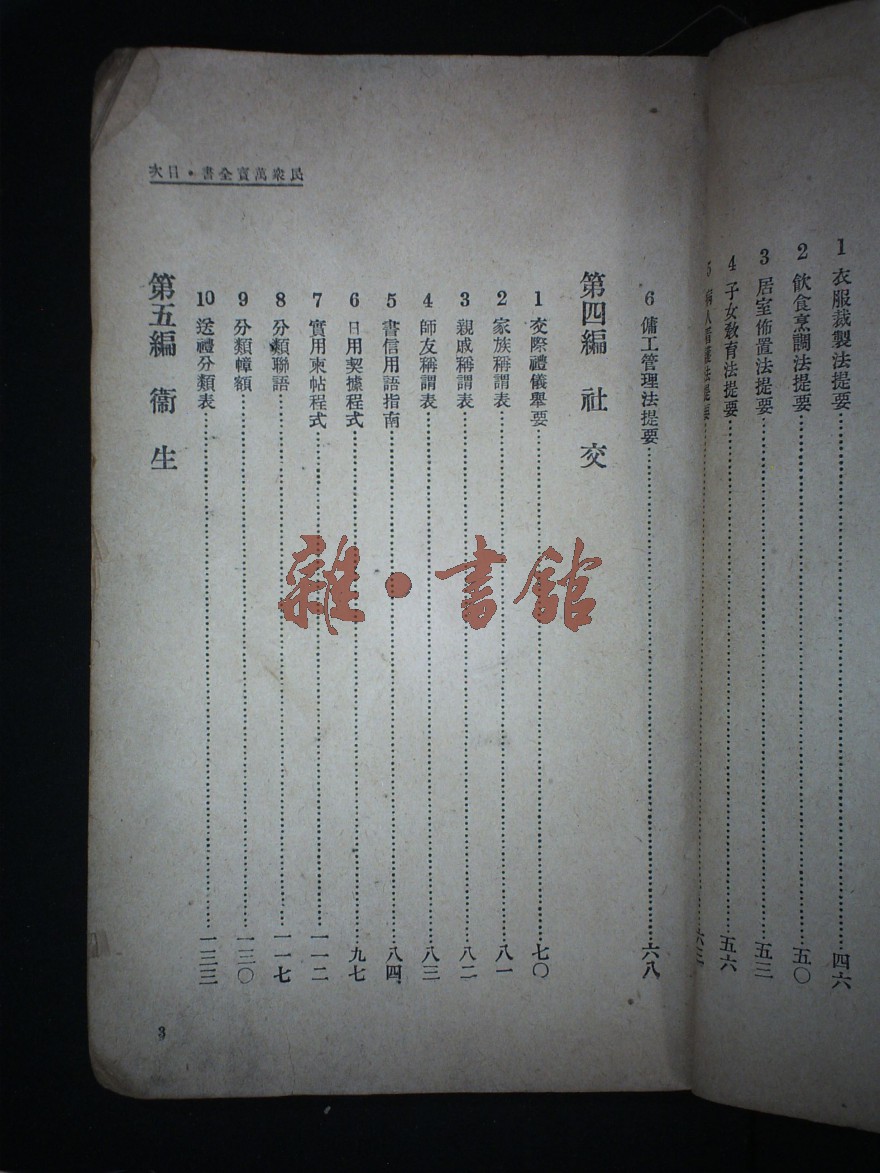 1 衣服裁製法提要……四六
2 飲食烹調法提要……五〇
3 居室佈置法提要……五三
4 子女教育法提要……五六
5 病人看護法提要……六三
民衆萬寳全書・目次
6 傭工管理法提要……六八
第四編 社交
1 交際禮儀舉要……七〇
2 家族稱謂表……八一
3 親戚稱謂表……八二
4 師友稱謂表……八三
5 書信用語指南……八四
6 日用契據程式……九七
7 實用柬帖程式……一一二
8 分類聯語……一一七
9 分類幛額……一三〇
10 送禮分類表……一三三
第五編 衞生
3
雜・書館